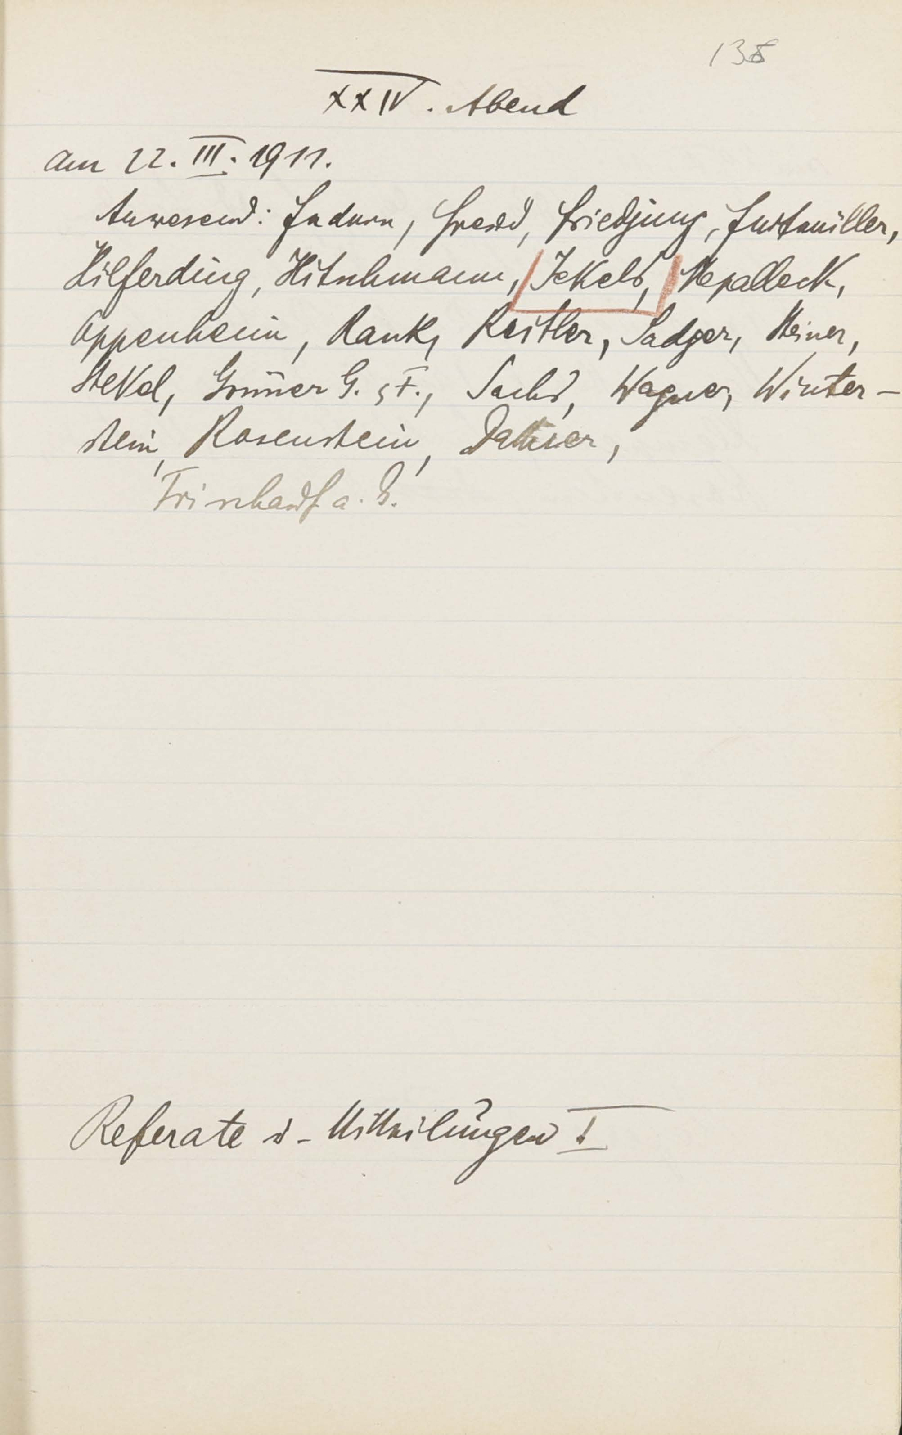 138
XXIV. Abend
am 22. III. 1911.
Anwesend: Federn, Freud, Friedjung, Furtmüller,
Hilferding, Hitschmann, Jekels, Nepalleck,
Oppenheim, Rank, Reitler, Sadger, Steiner,
Stekel, Grüner G. u F., Sachs, Wagner, Winter-
stein, Rosenstein, Dattner,
Frischauf a. G.
Referate u- Mitteilungen I